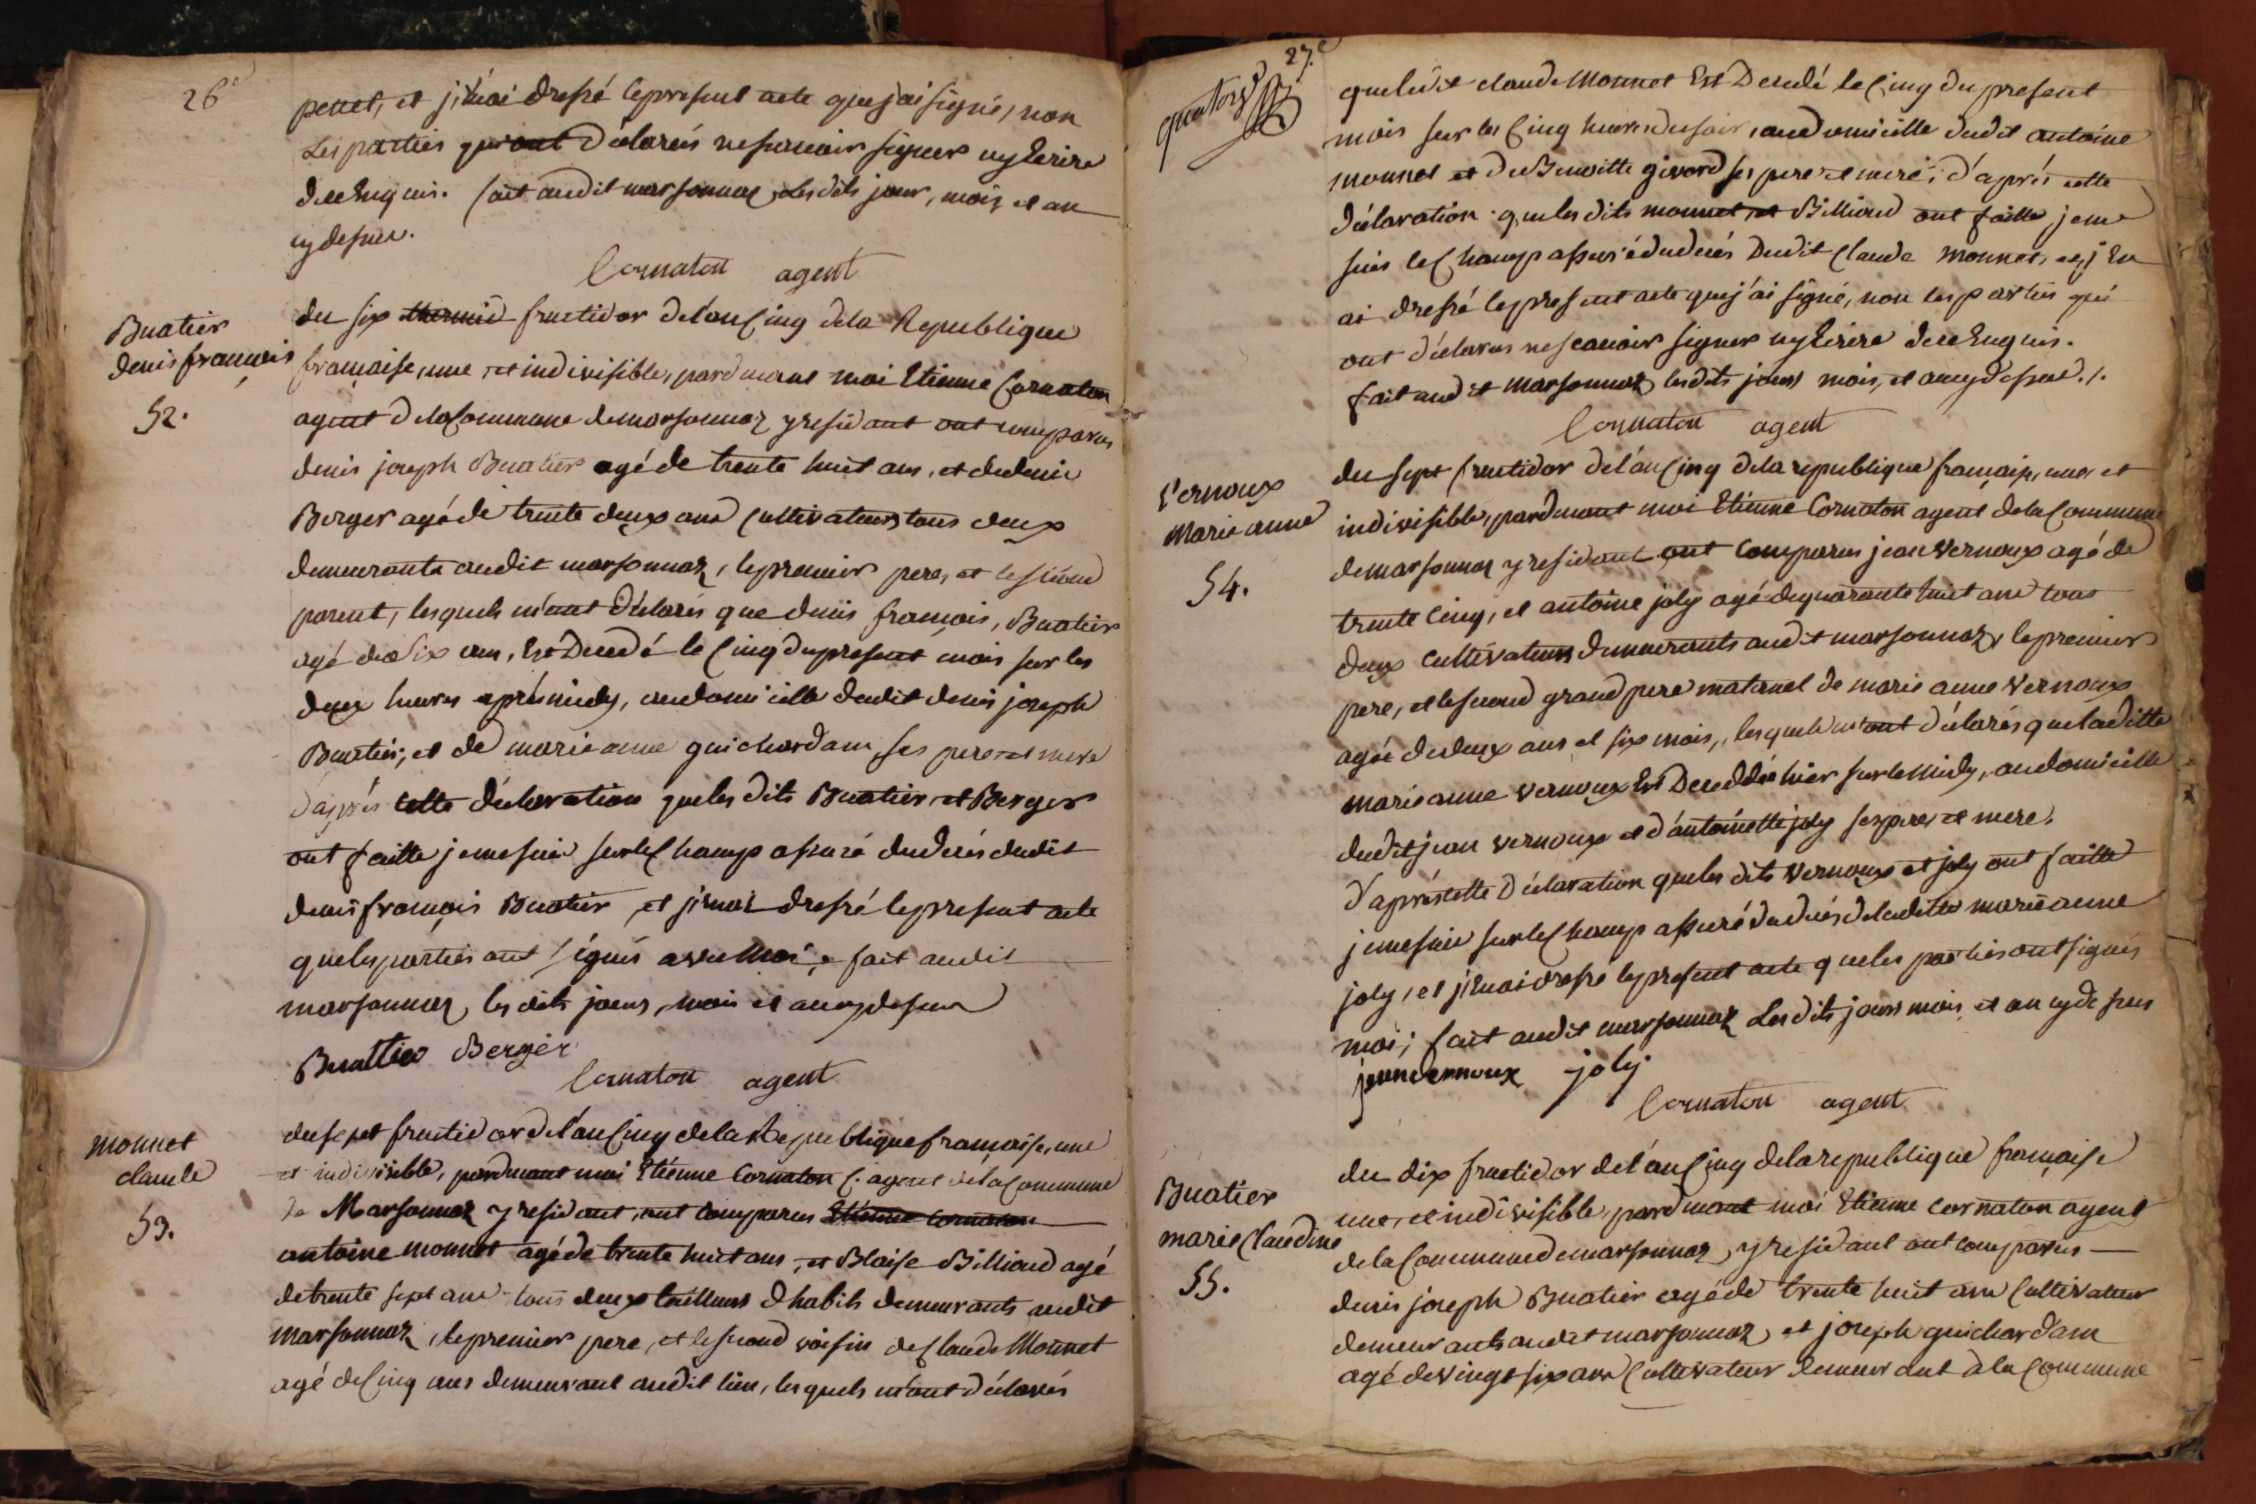 26e
penet, et j'en ai dressé le present acte que j'ai signé, non
les parties qui ont déclarés ne scavoir signer ny Ecrire
de ce Enquis. fait audit marsonnaz, les dits jour, mois, et an
cy dessus.
Cornaton agent
Buatier
denis françois
52.
du six thermid fructidor de l'an Cinq de la Republique
française, une, et indivisible, pardevant moi Etienne Cornaton
agent de la Commune de marsonnaz y residant ont comparus
denis joseph Buatier agé de trente huit ans, et de denis
Berger agé de trente deux ans Cultivateurs tous deux
demeurants audit marsonnaz, le premier pere, et le second
parent, lesquels m'ont déclarés que denis françois, Buatier
agé de Six ans, Est Decedé le Cinq du present mois sur les
deux heures aprés midy, au domicille dudit denis joseph
Buatier, et de marie anne guichardan ses pere et mere
d'aprés cette déclaration que les dits Buatier et Berger
ont faitte je me suis sur le Champ assuré du decés dudit
denis françois Buatier, et j'en ai dressé le present acte
que les parties ont signés avec moi, fait audit
marsonnaz, les dits jours, mois et an cy dessus
Buattier Berger
Cornaton agent
monnet
claude
53.
du sept fructidor de l'an Cinq de la Republique française, une
et indivisible, pardevant moi Etienne Cornaton C. agent de la Commune
de Marsonnaz y residant, ont comparus Etienne Cornaton
antoine monnet agé de trente huit ans, et Blaise Billioud agé
de trente sept ans tous deux tailleurs d'habits demeurants audit
marsonnaz, le premier pere, et le second voisin de Claude Monnet
agé de Cinq ans demeurant audit lieu, lesquels m'ont déclarés
27.e
quatorze
que ledit claude Monnet Est Decedé le Cinq du present
mois sur les Cinq heures du soir, au domicille dudit antoine
monnet et de Benoitte givord ses pere et mere; d'aprés cette
déclaration que les dits monnet, et Billioud ont faitte je me
suis le Champ assuré du decés dudit Claude Monnet, et j'En
ai dressé le present acte que j'ai signé, non les parties qui
ont déclarés ne scavoir signer ny Ecrire de ce Enquis.
fait audit Marsonnaz les dits jours mois, et an cy dessus ./.
Cornaton agent
Vernoux
Marie anne
54.
du sept fructidor de l'an Cinq de la republique française, une, et
indivisible, pardevant moi Etienne Cornaton agent de la Commune
de marsonnaz y residant ont Comparus jean Vernoux agé de
trente Cinq, et antoine joly agé de quarante huit ans tous
deux Cultivateurs demeurants audit marsonnaz, le premier
pere, et le second grand pere maternel de marie anne Vernoux
agée de deux ans et six mois, lesquels m'ont déclarés que laditte
marie anne Vernoux Est Deceddée hier sur le Midy, au domicille
dudit jean vernoux et d'antoinette joly ses pere et mere.
d'aprés cette déclaration que les dits Vernoux et joly ont faitte
je me suis sur le Champ assuré du decés de laditte marie anne
joly, et j'En ai dressé le present acte que les parties ont signés
moi; fait audit marsonnaz Les dits jours mois, et an cy dessus
jean vernoux joly
Cornaton agent
Buatier
marie Claudine
55.
du dix fructidor de l'an Cinq de la republique française
une, et indivisible, pardevant moi Etienne Cornaton agent
de la Commune de marsonnaz, y residant ont comparus
denis joseph Buatier agé de trente huit ans Cultivateur
demeurants audit marsonnaz, et joseph guichardan
agé de vingt six ans Cultivateur demeurant à la Commune